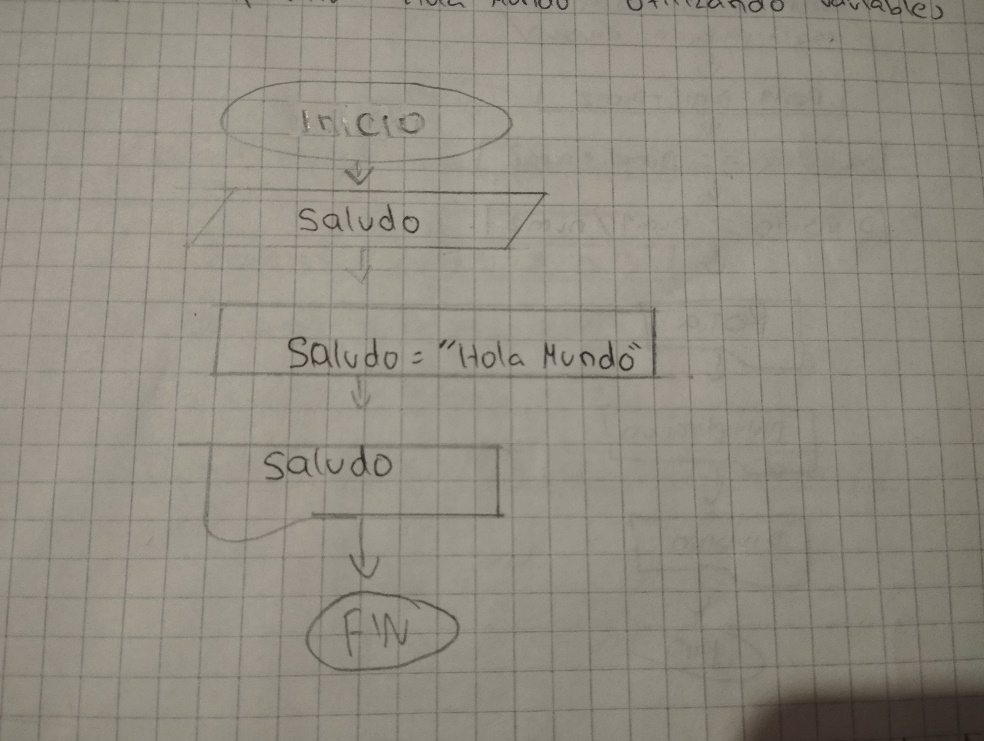 Hola Mundo utilizando variables
Inicio
Saludo
Saludo = "Hola Mundo"
Saludo
FIN